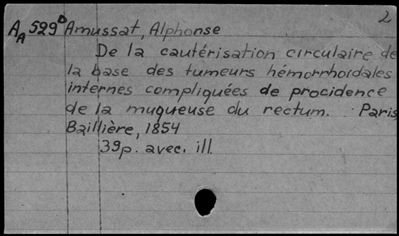 2
A A 529 D Amussat, Alphonse
De la cautérisation circulaire de
la base des tumeurs hémorrhoïdales
internes compliquées de procidence
de la muqueuse du rectum. Paris,
Baillière, 1854
39p. avec. ill.